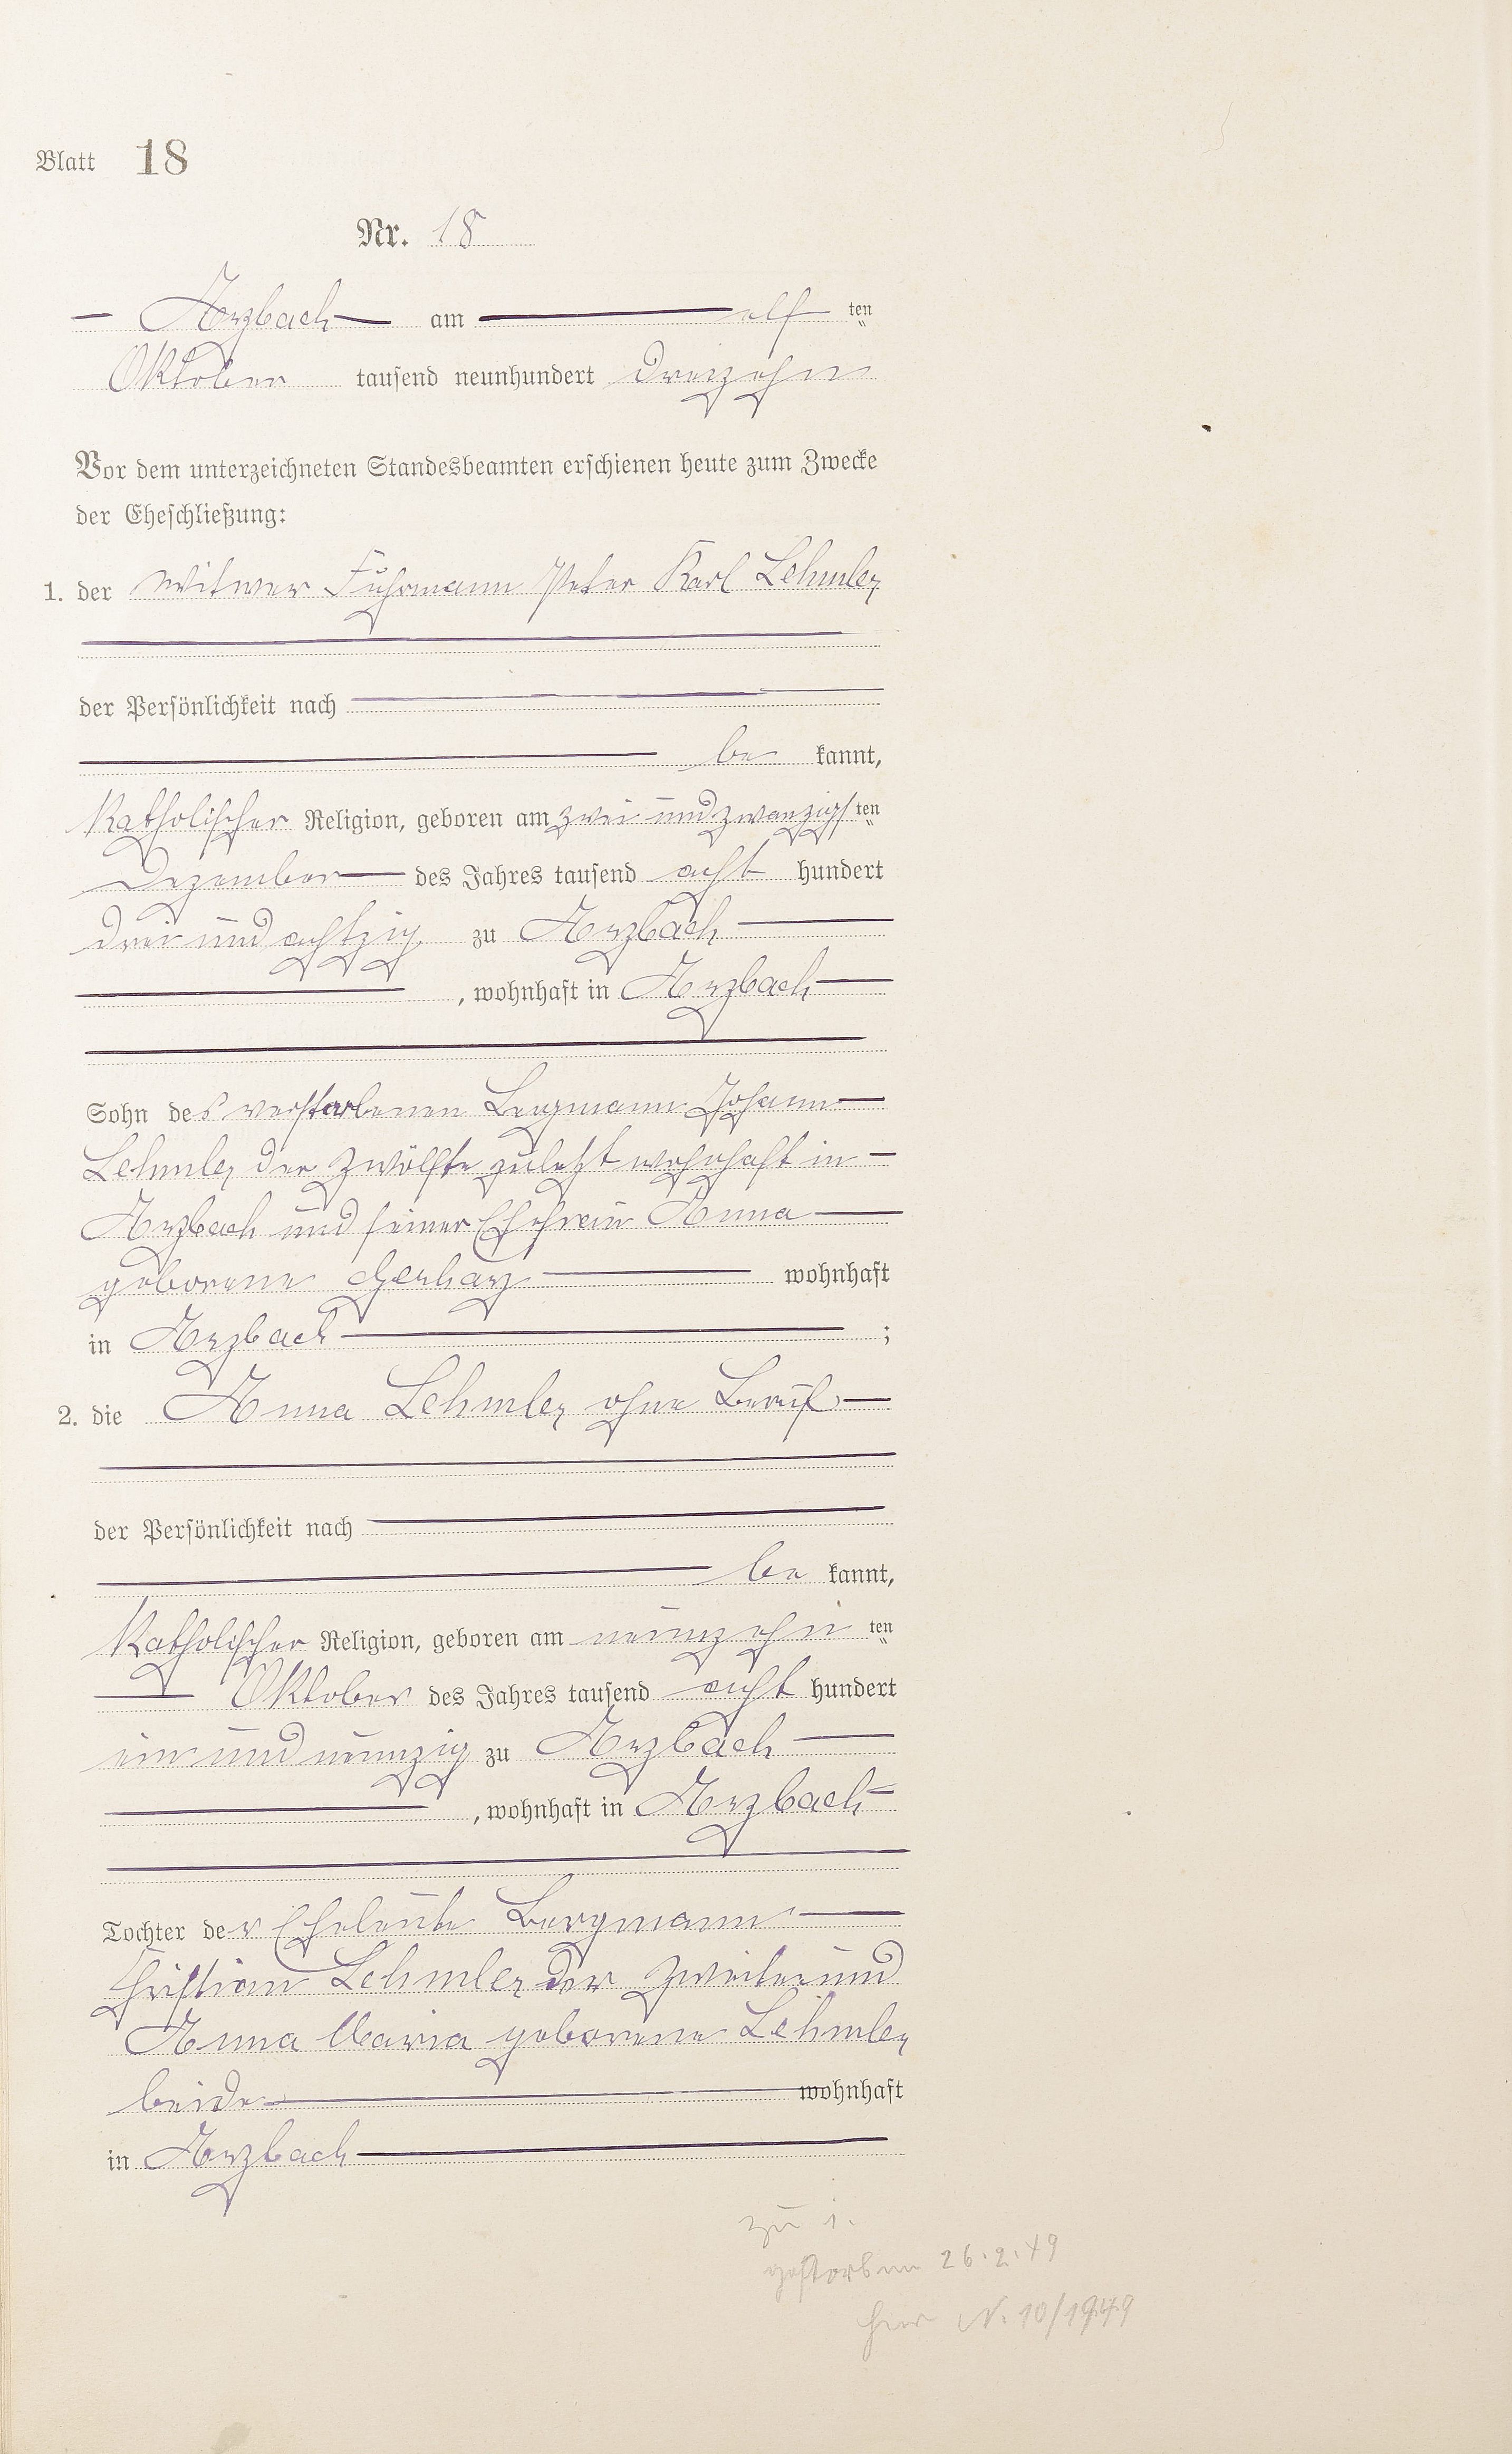 Blatt 18
Nr. 18
Arzbach am elf ten
Oktober tausend neunhundert dreizehn
Vor dem unterzeichneten Standesbeamten erschienen heute zum Zwecke
der Eheschließung:
1. der Witwer Fuhrmann Peter Karl Lehmler
der Persönlichkeit nach
be kannt,
Katholischer Religion, geboren am zwei und zwanzigs ten
Dezember des Jahres tausend acht hundert
drei und achtzig zu Arzbach
, wohnhaft in Arzbach
Sohn des verstorbenen Bergmann Johann
Lehmler der Zwölfte zuletzt wohnhaft in
Arzbach und seiner Ehefrau Anna
geborene Gerharz wohnhaft
in Arzbach ;
2. die Anna Lehmler ohne Beruf
der Persönlichkeit nach
be kannt,
Katholischer Religion, geboren am neunzehn ten
Oktober des Jahres tausend acht hundert
ein und neunzig zu Arzbach
, wohnhaft in Arzbach
Tochter der Eheleute Bergmann
Christian Lehmler der Zweite und
Anna Maria geborene Lehmler
beide wohnhaft
in Arzbach
zu 1.
gestorben 26.2.49
hier N. 10/1949